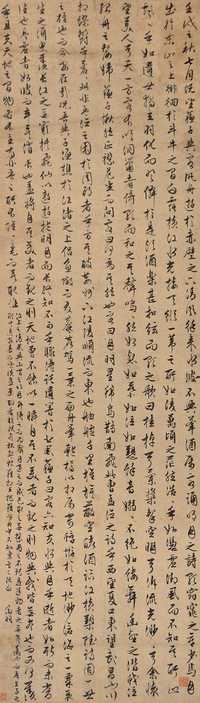 壬戌之秋七月既望蘇子與客泛舟遊於赤壁之下清風徐來水波不興舉酒屬客誦明月之詩歌窈窕之章少焉月
出於東山之上徘徊於斗牛之間白露橫江水光接天縱一葦之所如凌萬頃之茫然浩浩乎如馮虛御風而不知其所
止飄飄乎如遺世獨立羽化而登仙於是飲酒樂甚扣舷而歌之歌曰桂棹兮蘭槳擊空明兮泝流光渺渺兮余懷
望美人兮天一方客有吹洞簫者倚歌而和之其聲嗚嗚然如怨如慕如泣如訴餘音嫋嫋不絕如縷舞幽壑之潛蛟
泣孤舟之嫠婦蘇子愀然正襟危坐而問客曰何為其然也客曰月明星稀烏鵲南飛此非曹孟德之詩乎西望夏口東望武昌山川
相繆鬱乎蒼蒼此非孟德之困於周郎者乎方其破荊州下江陵順流而東也舳艫千里旌旗蔽空釃酒臨江橫槊賦詩固一世
之雄也而今安在哉況吾與子漁樵於江渚之上侶魚蝦而友麋鹿駕一葉之扁舟舉匏樽以相屬寄蜉蝣於天地渺滄海之一粟哀
吾生之須臾羨長江之無窮挾飛仙以遨遊抱明月而長終知不可乎驟得託遺響於悲風蘇子曰客亦知夫水與月乎逝者如斯而未嘗
往也盈虛者如彼而卒莫消長也蓋將自其變者而觀之則天地曾不能以一瞬自其不變者而觀之則物與我皆無盡也而又何羨乎
且夫天地之間物各有主苟非吾之所有雖一毫而莫取